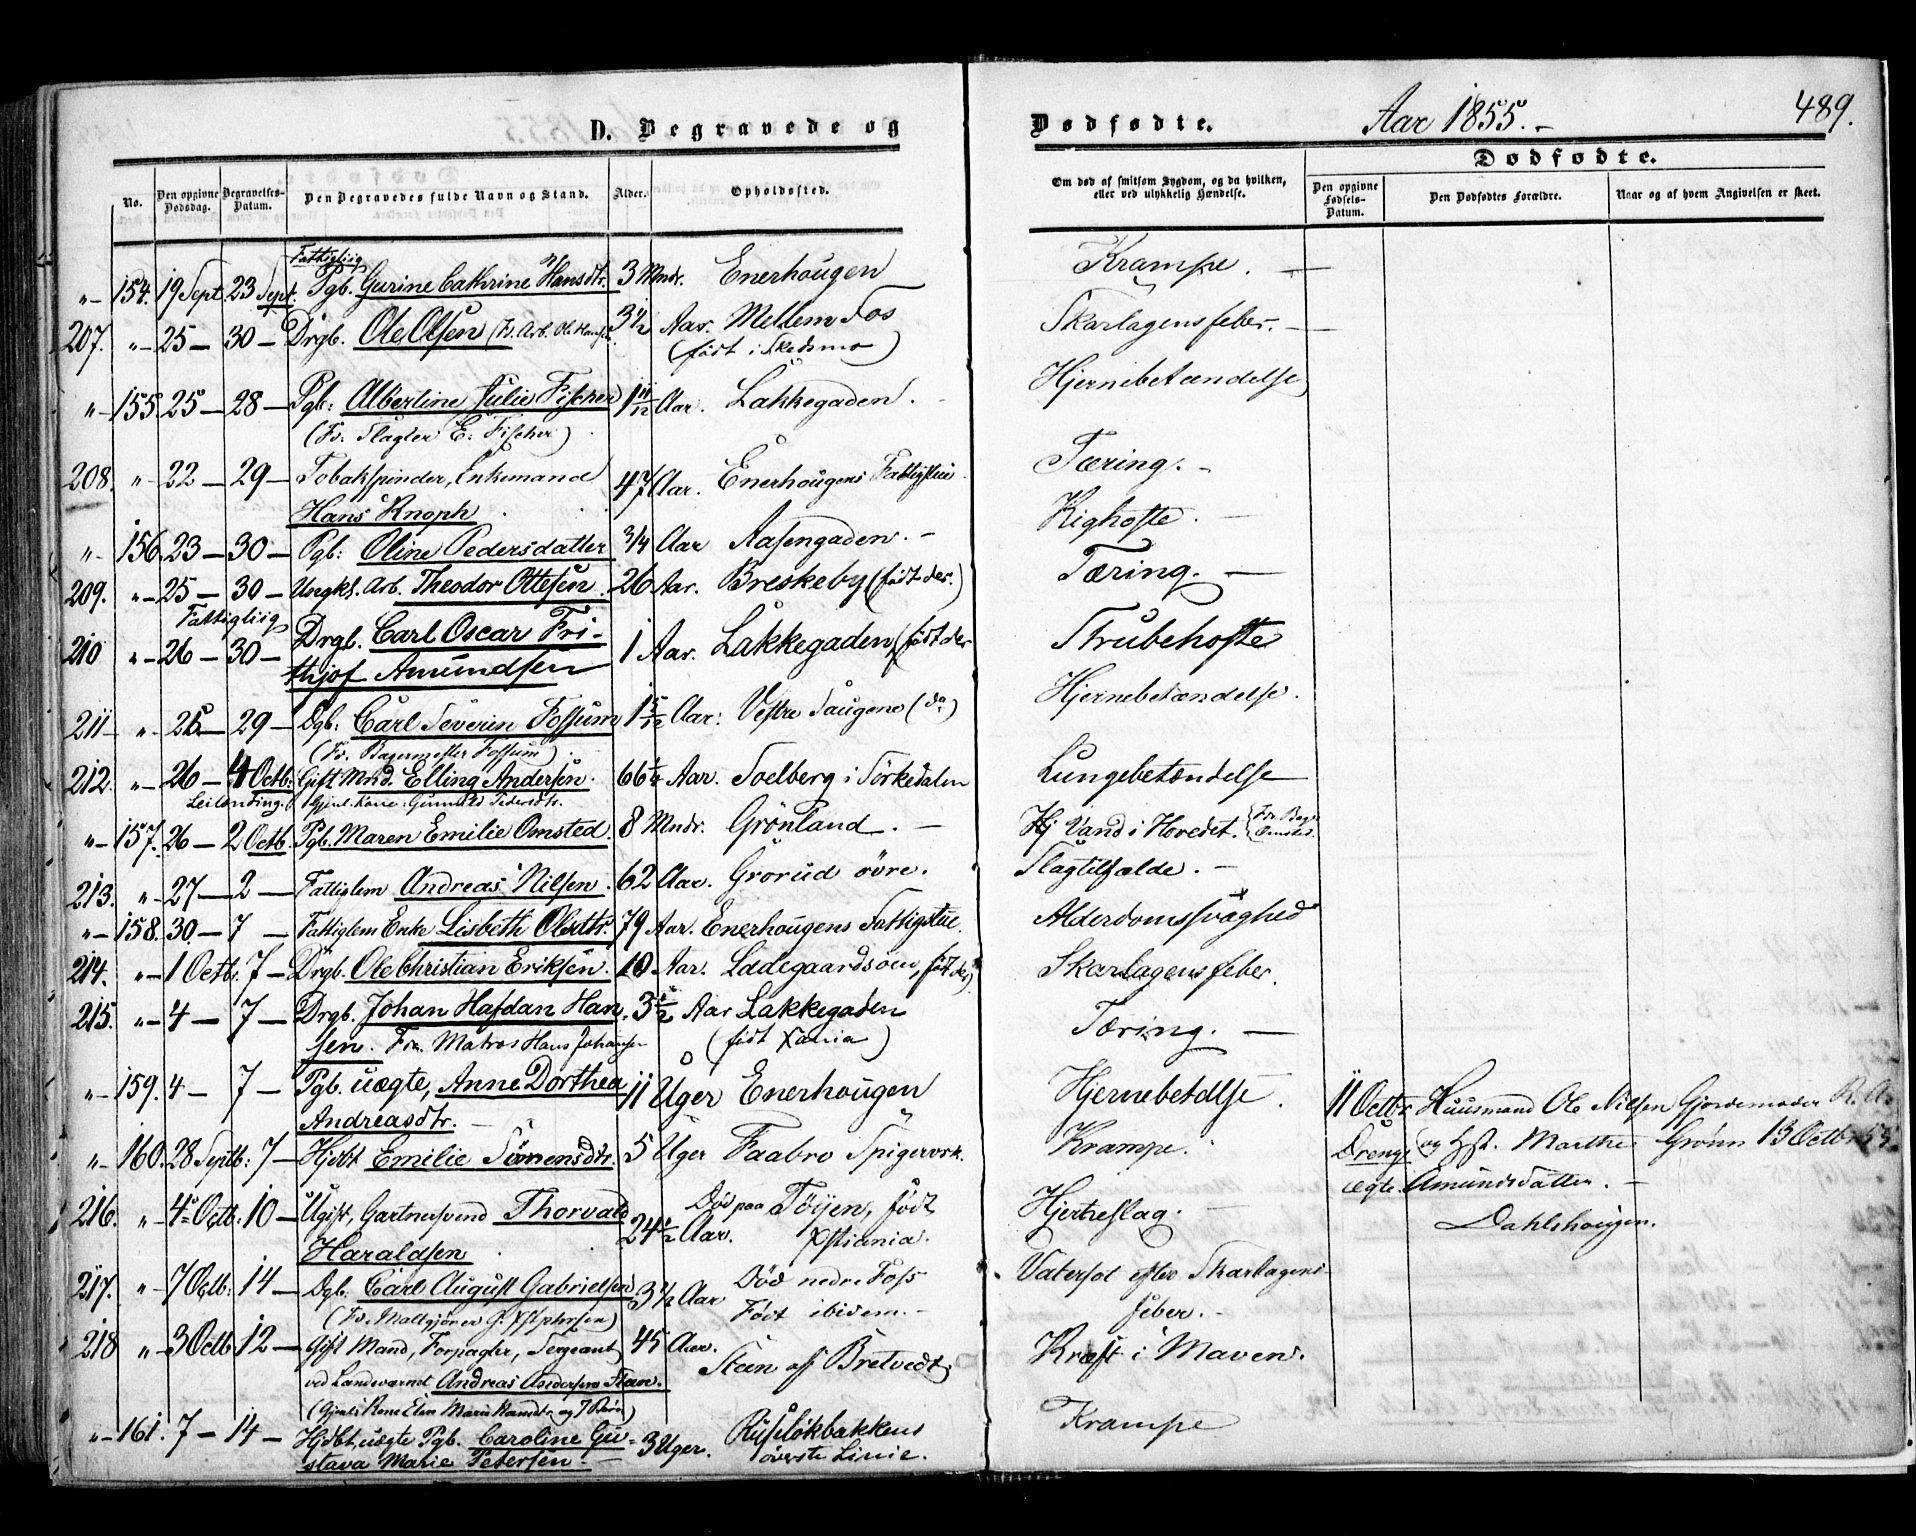 D. Begravede og
Dødfødte.
Aar 1855.-
489.
Dødfødte.
No.
Den opgivne Dødsdag.
Begravelses-Datum.
Den Begravedes fulde Navn og Stand.
Alder.
Opholdssted.
Om død af smitsom Sygdom, og da hvilken, eller ved ulykkelig Hændelse.
Den opgivne Fødsels-Datum.
Den Dødfødtes Forældre.
Naar og af hvem Angivelsen er skeet.
Fattigliig
"- 154. 19 Sept. 23 Sept. Pgb. Gurine Cathrine Hansdtr. 3 Mndr. Enerhougen Krampe. -
207. "- 25 - 30 - Drgb. Ole Olsen (Fr. Arb. Ole Hansen 3 1/2 Aar. Mellem Fos Skarlagensfeber. -
(født i Skedsmo)
"- 155. 25 - 28 - Pgb: Albertine Julie Fischer 1 11/12 Aar. Lakkegaden. Hjernebetændelse
(Fr. Slagter E. Fischer)
208. "- 22 - 29 - Tobakspinder, Enkemand 47 Aar. Enerhougens Fattigstue Tæring. -
Hans Knoph.
"- 156. 23 - 30 - Pgb: Oline Pedersdatter 3/4 Aar Aasengaden. - Kighoste. -
209. "- 25 - 30 - Ungkl. Arb. Theodor Ottesen. 26 Aar. Breskeby (født der.) Tæring. -
Fattigliig
210 "- 26 - 30 - Drgb. Carl Oscar Fri- 1 Aar. Lakkegaden, (født der Strubehoste
thjof Amundsen
211 "- 25 - 29 - Dgb: Carl Severin Fossum 1 5/12 Aar: Vestre Haugene (do) Hjernebetændelse.
(Fr. Bagermester Fossum)
212. "- 26 - 4 Octb: Gift Mnd. Elling Andersen. 66 1/4 Aar. Soelberg i Sørkedalen Lungebetændelse
Leilending. (Gjenl. Kone: Gunnild Pedersdtr.
"- 157. 26 - 2 Octb. Pgb. Maren Emilie Omsted. 8 Mndr. Grönland. - Hj Vand i Hovedet. (Fr. Bag. Omsted.
213. "- 27 - 2 - Fattiglem Andreas Nilsen. 62 Aar. Grorud övre. Slagtilfælde. -
"- 158. 30. - 7 - Fattiglem Enke Lisbeth Olsdtr. 79 Aar. Enerhougens Fattigstue. Alderdomssvaghed
214. "- 1 Octb. 7 - Drgb. Ole Christian Eriksen. 10 Aar. Ladegaardsöen, født der) Skarlagensfeber.
215. "- 4 - 7 - Drgb. Johan Hafdan Han 3 1/2 Aar Lakkegaden Tæring. -
sen. Fr. Matros Hans Johansen (født Xania)
"- 159. 4 - 7 - Pgb. uægte, Anne Dorthea 11 Uger Enerhougen Hjernebetdlse.
Andreasdtr. -
11 Octbr. Huusmand Ole Nilsen Gjordemoder R. A.
Drenge og Hst. Marthe Grönn 13 Octbr 55.
ægte. Amundsdatter. -
Dahlshougen.
"- 160. 28 Septb: 7 - Hjdbt Emilie Sörensdtr. 5 Uger Faabro Spigervrk. Krampe.
216. "- 4 Octb: 10 - Ugift, Gartnersvend Thorvald 24 1/2 Aar. Död paa Töyen, født Xstiania. Hjerteslag. -
Haraldsen
217. "- 7 Octb: 14 - Dgb: Carl August Gabrielsen 3 1/2 Aar Död nedre Foss Vatersot efter Skarlagens-
feber. -
Født ibidem. -
218 "- 3 Octb 12 - Gift Mand, Forpagter, Sergeant 45 Aar. Steen af Bretvedt Kræft i Maven.
ved Landeværnet Andreas Andersen Steen.
(Gjenl. Kone Elen Marie Hansdtr. og 7 Børn)
"- 161. 7 - 14 - Hjdbt, uægte Pgb. Caroline Gu- 3 Uger. Rusælökbakkens Krampe
stava Marie Petersen. - överste Linie.